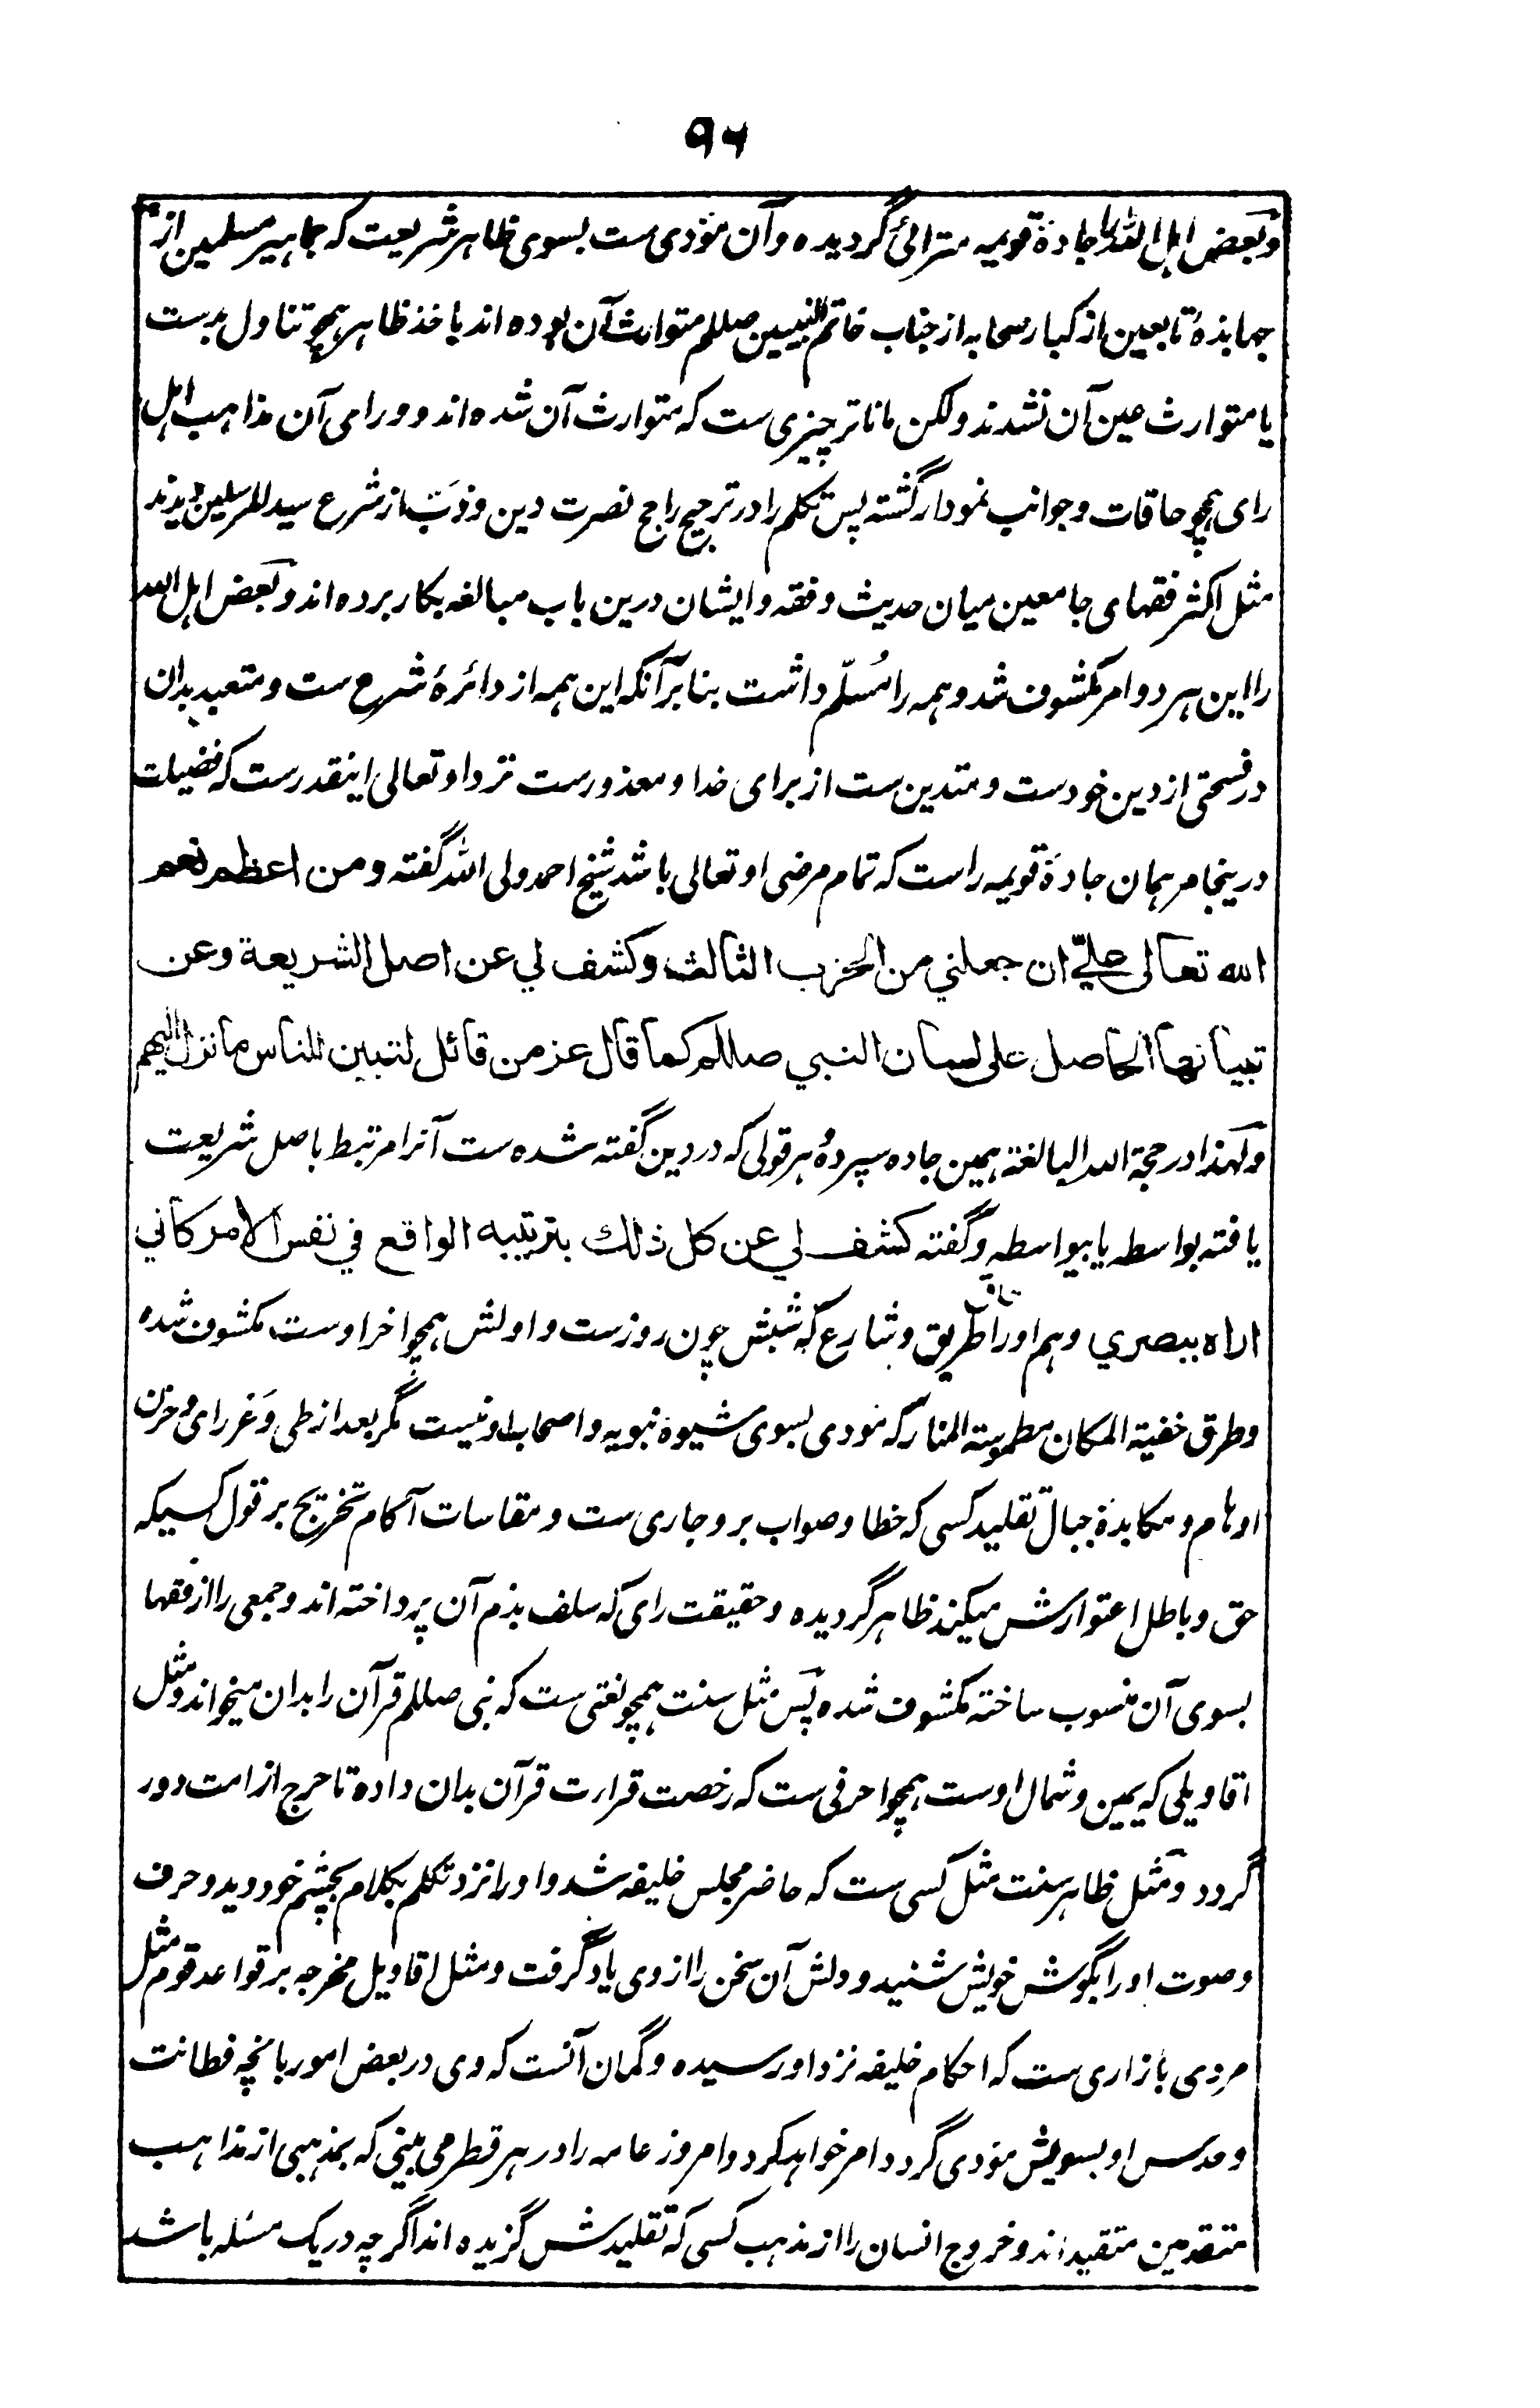 ۹۶
وبعض اهل الله را جادۀ قویمه مترائی گردیده وآن مؤدی ست بسوی ظاهر شریعت که جماهیر مسلمین از
جهابذۀ تابعین از کبار صحابه از جناب خاتم النبیین صللم متوارث آن بوده اند باخذ ظاهر همچو تناول بدست
یا متوارث عین آن نشدند ولکن ماناتر چیزی ست که متوارث آن شده اند و ورامی آن مذاهب اهل
رای همچو حاقات وجوانب نمودار گشته پس تکلم را در ترجیح راجح نصرت دین وذبّ از شرع سید المرسلین دیدند
مثل اکثر فقهای جامعین میان حدیث وفقه وایشان درین باب مبالغه بکار برده اند وبعض اهل الله
را این هر دو امر مکشوف شد وهمه را مُسلّم داشت بنا بر آنکه این همه از دائرۀ شرع ست ومتعبد بدان
در فسحتی از دین خودست ومتدین ست از برای خدا ومعذورست نزد او تعالی اینقدرست که فضیلت
درینجا مر همان جادۀ قویمه راست که تمام مرضی او تعالی باشد شیخ احمد ولی الله گفته ومن اعظم نعم
الله تعالی علیّ ان جعلني من الحزب الثالث وكشف لي عن اصل الشريعة وعن
تبيانها الحاصل على لسان النبي صللم كما قال عز من قائل لتبين للناس ما نزل اليهم
ولهذا در حجة الله البالغة همین جاده سپردۀ هر قولی که در دین گفته شده ست آنرا مرتبط باصل شریعت
یافته بواسطه یا بیواسطه وگفته كشف لي عن كل ذلك بترتيبه الواقع في نفس الامر كاني
اراه ببصري وهم او را طریق وشارع که شبش چون روزست واولش همچو آخر اوست مکشوف شده
وطرق خفیة المکان مطموسة المنار که مؤدی بسوی شیوۀ نبویه واصحاب او نیست مگر بعد از طی وَعَر رای وحزن
اوهام ومکابدۀ جبال تقلید کسی که خطا وصواب برو جاری ست ومقاسات آکام تخریج بر قول کسیکه
حق وباطل اعتوارش میکند ظاهر گردیده وحقیقت رای که سلف بذم آن پرداخته اند وجمعی را از فقها
بسوی آن منسوب ساخته مکشوف شده پس مثل سنت همچو لغتی ست که نبی صللم قرآن را بدان میخواند ومثل
اقاویلی که یمین وشمال اوست همچو احرفی ست که رخصت قرارت قرآن بدان داده تا حرج از امت دور
گردد ومثل ظاهر سنت مثل کسی ست که حاضر مجلس خلیفه شد واو را نزد تکلم بکلام بچشم خود دید وحرف
وصوت او را بگوش خویش شنید ودلش آن سخن را از وی یاد گرفت ومثل اقاویل مخرجه بر قواعد قوم مثل
مردی بازاری ست که احکام خلیفه نزد او رسیده وگمان آنست که وی در بعض امور بانچه فطانت
وحدس او بسویش مؤدی گردد امر خواهد کرد وامروز عامه را در هر قطر می بینی که بمذهبی از مذاهب
متقدمین متقید اند وخروج انسان را از مذهب کسی که تقلیدش گزیده اند اگرچه در یک مسئله باشد